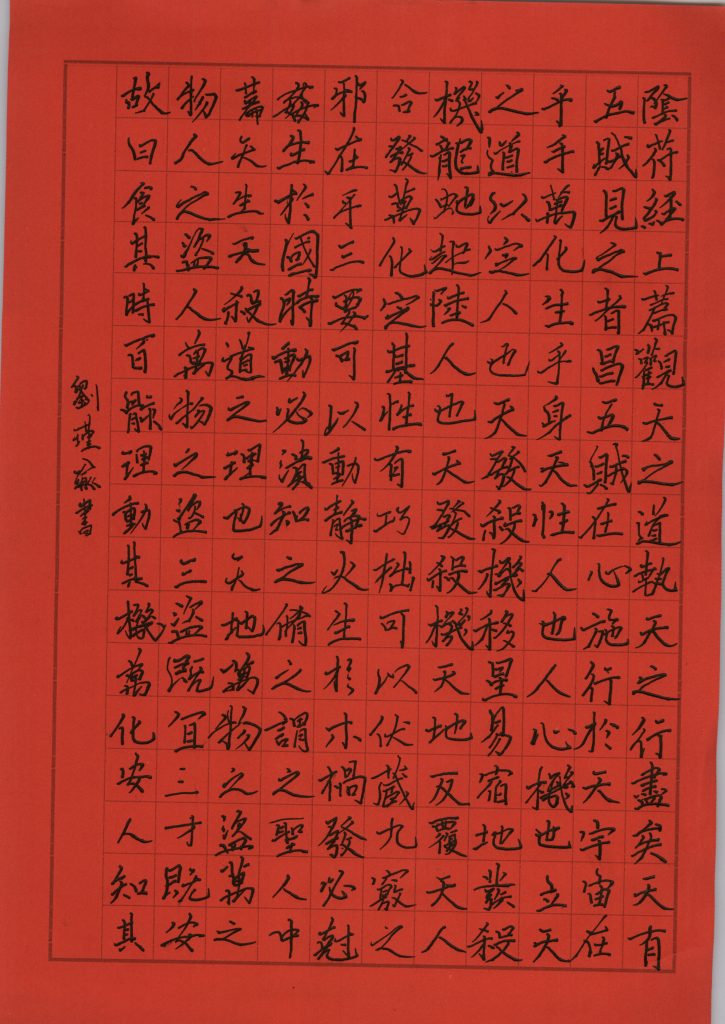 陰符經上篇觀天之道執天之行盡矣天有
五賊見之者昌五賊在心施行於天宇宙在
乎手萬化生乎身天性人也人心機也立天
之道以定人也天發殺機移星易宿地發殺
機龍虵起陸人也天發殺機天地反覆天人
合發萬化定基性有巧拙可以伏藏九竅之
邪在乎三要可以動靜火生於木禍發必尅
姦生於國時動必潰知之脩之謂之聖人中
篇天生天殺道之理也天地萬物之盜萬之
物人之盜人萬物之盜三盜既宜三才既安
故曰食其時百骸理動其機萬化安人知其
劉瑾書